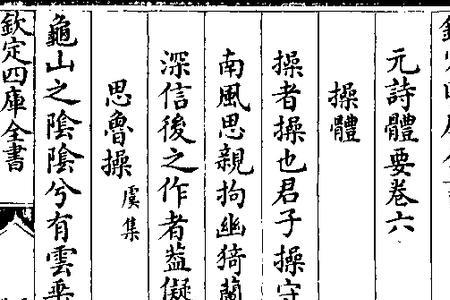 元詩體要卷六
操體
操者操也君子操守
南風思親拘幽猗蘭
深信後之作者葢儗
思魯操 虞集
龜山之陰陰兮有雲乗
欽定四庫全書